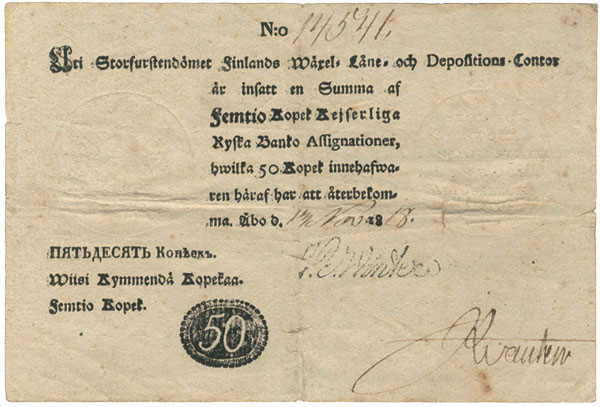 N:o 14541.
Uti Storfurstendömet Finlands Wäxel- Låne- och Depositions-Contor
är insatt en Summa af
Femtio Kopek Kejserliga
Ryska Banko Assignationer,
hwilka 50 Kopek innehafwa-
ren häraf har att återbekom-
ma. Åbo d. Nov 1818.
ПЯТЬДЕСЯТЬ Копѣекъ.
Wiisi Kymmendä Kopekaa.
Femtio Kopek.
50